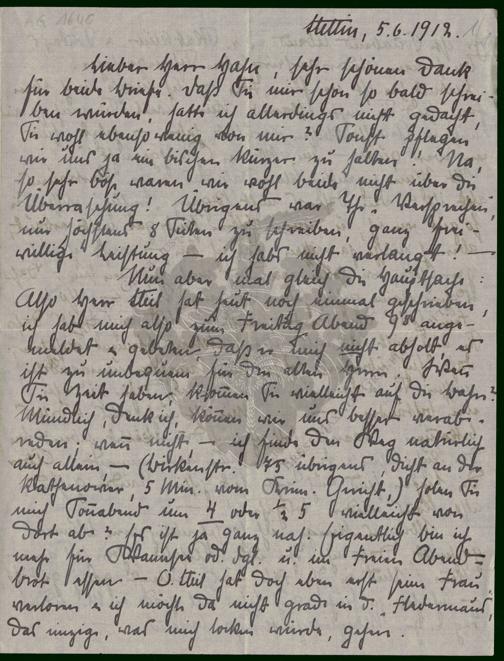 Stettin, 5.6.1912.
Lieber Herr Hahn, sehr schönen Dank
für beide Briefe. Daß Sie mir schon so bald schrei-
ben würden, hatte ich allerdings nicht gedacht,
Sie wohl ebenso wenig von mir? Sonst pflegen
wir uns ja ein bischen kürzer zu halten! Na,
so sehr böse waren wir wohl beide nicht über die
Überraschung! Übrigens war Ihr Versprechen
nur höchstens 8 Seiten zu schreiben, ganz frei-
willige Leistung — ich habs nicht verlangt! —
Nun aber mal gleich die Hauptsache:
Also Herr Heil hat heut noch einmal geschrieben,
ich hab mich also zum Freitag Abend ange-
meldet u gebeten, daß er mich nicht abholt, es
ist zu unbequem für den alten Herrn. Wenn
Sie Zeit haben, können Sie vielleicht auf die Bahn?
Mündlich, denk ich, können wir uns besser verab-
reden. wenn nicht, — ich finde den Weg natürlich
auch allein — (Birkenstr. 75 übrigens, dicht an der
Rathenower, 5 Min. vom Krim. Gericht,) holen Sie
mich Sonnabend um 4 oder ½ 5 vielleicht von
dort ab? Es ist ja ganz nah. Eigentlich bin ich
mehr für Wannsee od. dgl. u. im Freien Abend-
brot essen — O. Heil hat doch eben erst seine Frau
verloren u ich möchte da nicht grade in d. "Fledermaus",
das einzige, was mich locken würde, gehen.